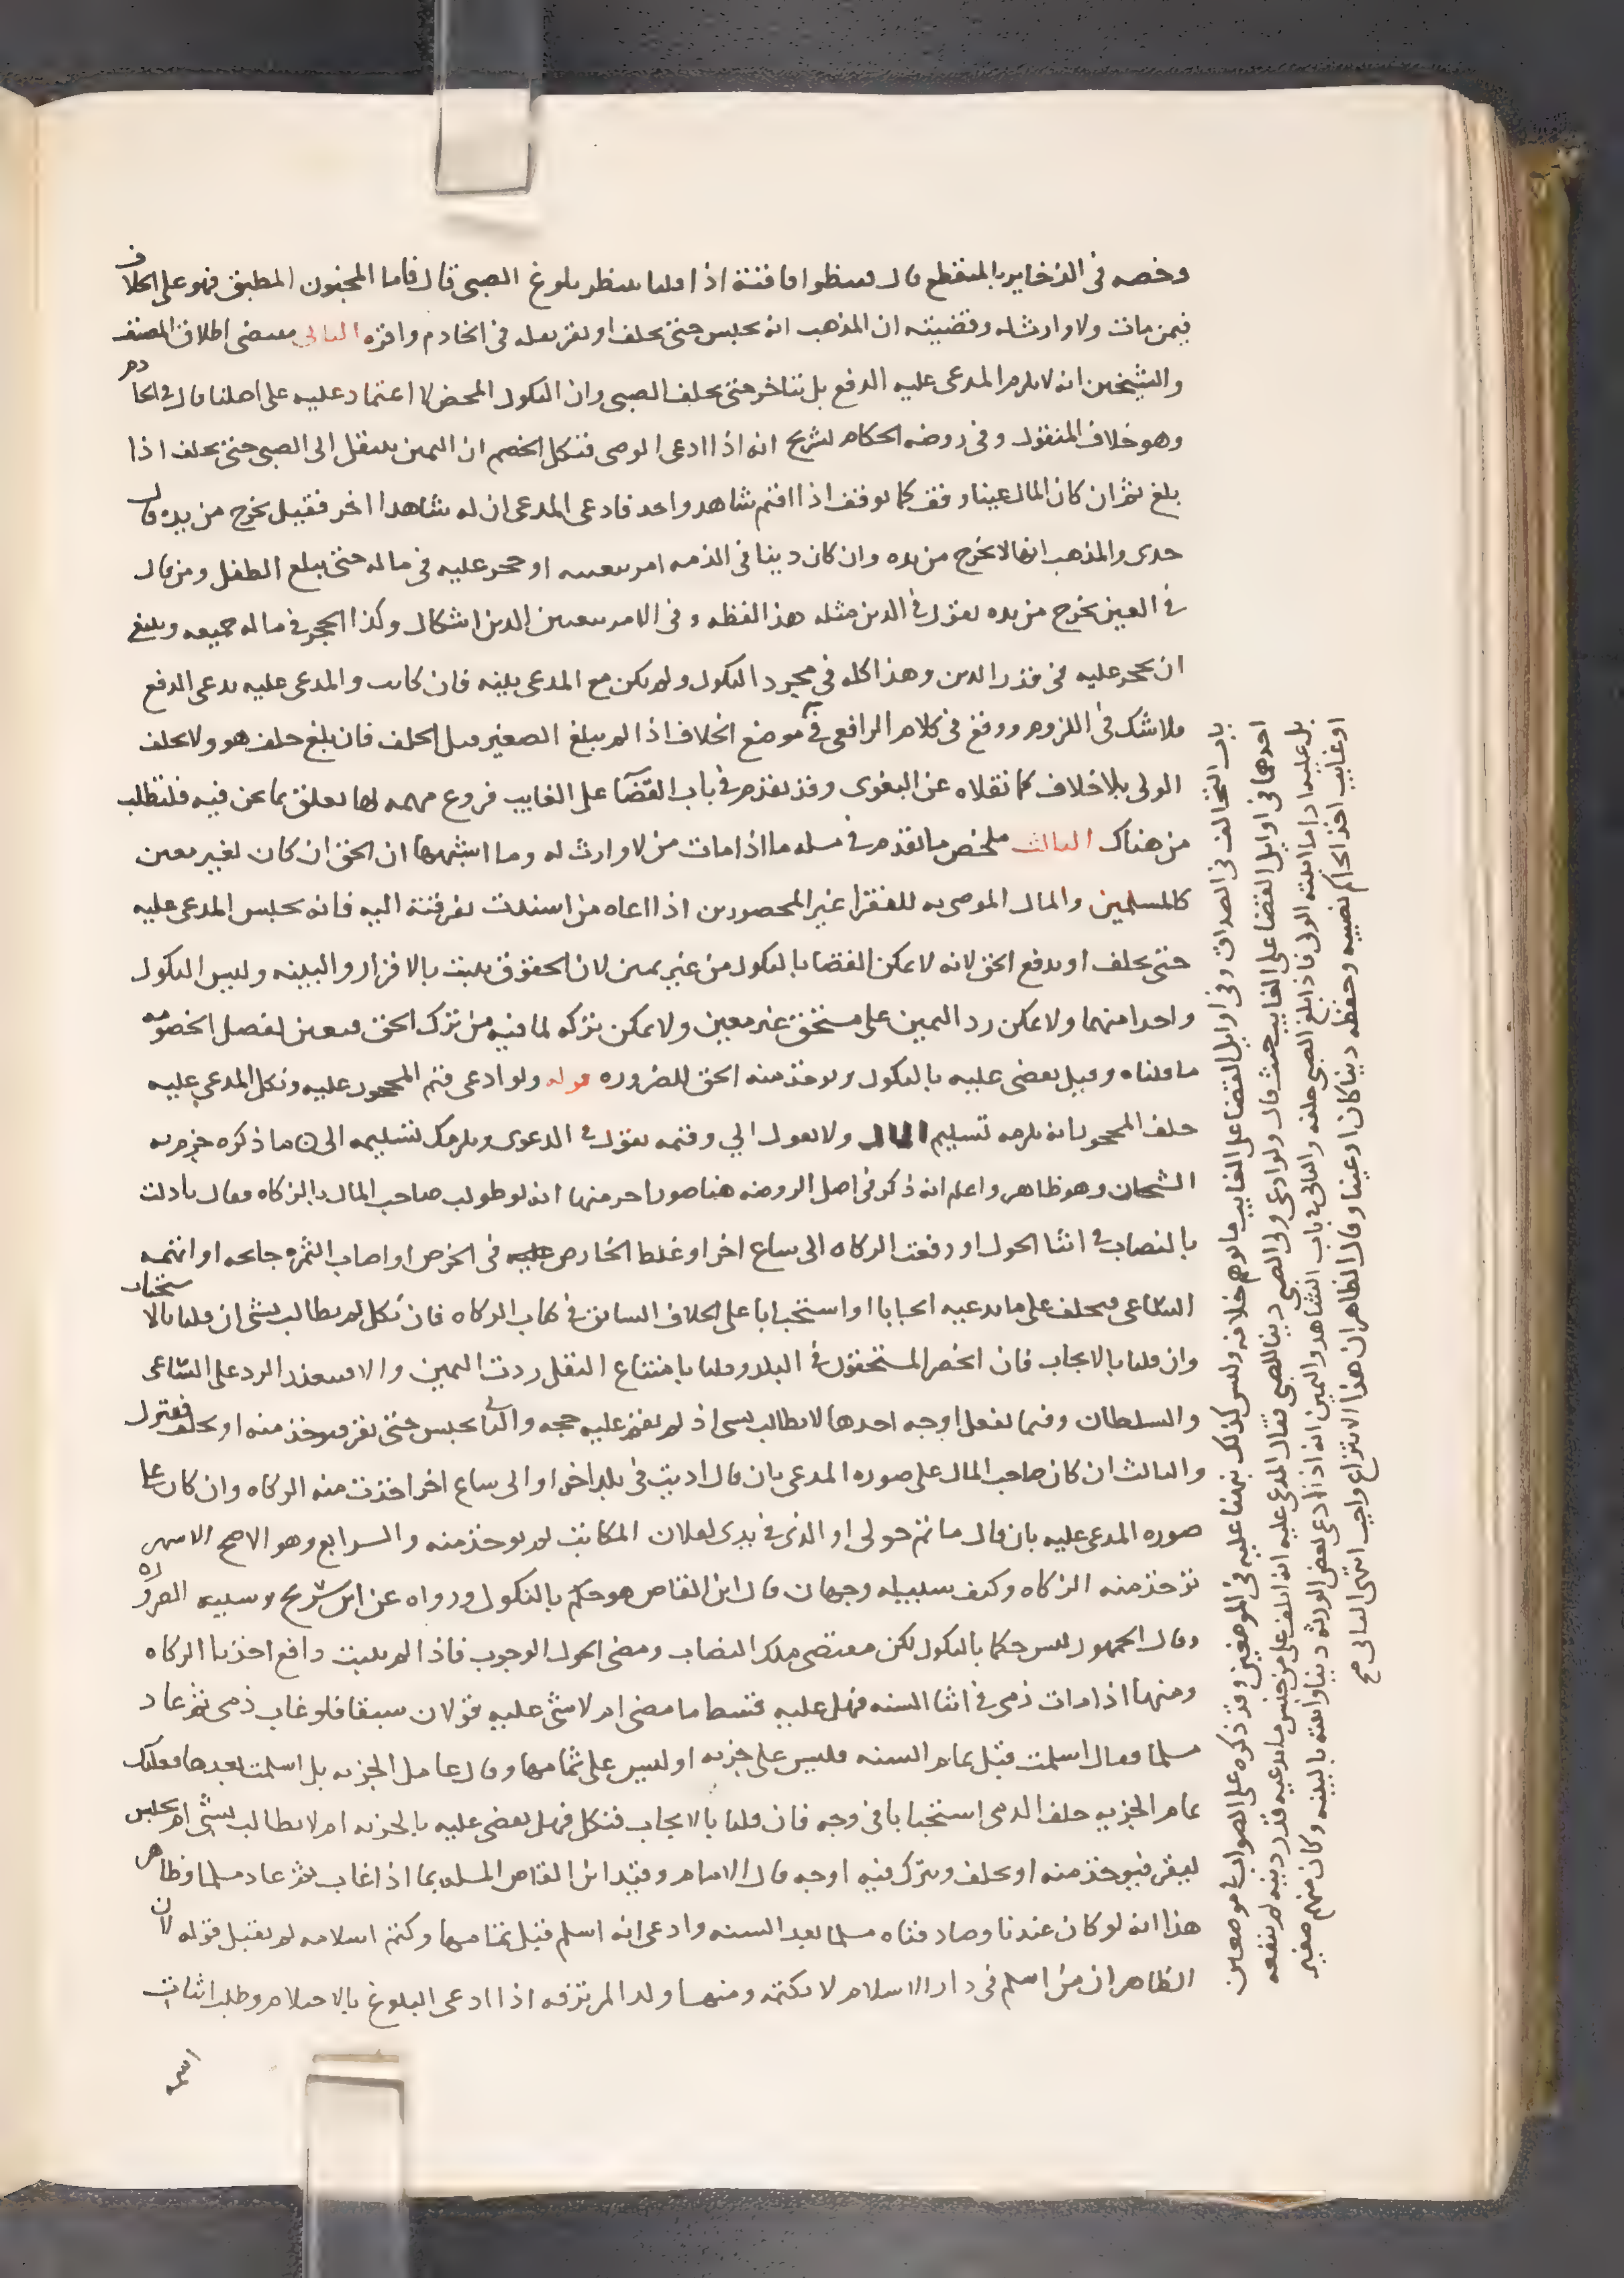 وخصه في الذخاير بالمنقطع قال فينتظر افاقته اذا قلنا ينتظر بلوغ الصبي قال فاما المجنون المطبق فهو على الخلاف
فيمن مات ولا وارث له وقضيته ان المذهب انه يحبس حتى يحلف او يقر نقله في الخادم واقره الثاني مقتضى اطلاق المصنف
والشيخين انه لا يلزم المدعى عليه الدفع بل يتاخر حتى يحلف الصبي وان النكول المحض لا اعتماد عليه على اصلنا قال في الخادم
وهو خلاف المنقول وفي روضه الحكام لشريح انه اذا ادعى الوصي فنكل الخصم ان اليمين ينتقل الى الصبي حتى يحلف اذا
بلغ ثم ان كان المال عينا وقف كما يوقف اذا اقيم شاهد واحد فادعى المدعي ان له شاهدا اخر فقيل يخرج من يده قال
جدي والمذهب انها لا يخرج من يده وان كان دينا في الذمه امر بتعيينه او حجر عليه في ماله حتى يبلغ الطفل ومن قال
في العين يخرج من يده يقول في الدين مثله هذا لفظه وفي الامر بتعيين الدين اشكال وكذا الحجر في ماله جميعه وينبغي
ان يحجر عليه في قدر الدين وهذا كله في مجرد النكول ولم يكن مع المدعي بينه فان كانت والمدعى عليه يدعي الدفع
فلا شك في اللزوم ووقع في كلام الرافعي في موضع الخلاف اذا لم يبلغ الصغير قبل الحلف فان بلغ حلف هو ولا يحلف
الولي بلا خلاف كما نقلاه عن البغوي وقد تقدم في باب القضا على الغايب فروع مهمه لها تعلق بما نحن فيه فلتطلب
من هناك الثالث ملخص ما تقدم في مسله ما اذا مات من لا وارث له وما اشبهها ان الحق ان كان لغير معين
كالمسلمين والمال الموصى به للفقرا غير المحصورين اذا ادعاه من اسندت تفرقته اليه فانه يحبس المدعى عليه
حتى يحلف او يدفع الحق لانه لا يمكن القضا بالنكول من غير يمين لان الحقوق يثبت بالاقرار والبينه وليس النكول
واحدا منهما ولا يمكن رد اليمين على مستحق غير معين ولا يمكن تركه لما فيه من ترك الحق فتعين لفصل الخصومه
ما قلناه وقيل يقضى عليه بالنكول ويوخذ منه الحق للضروره قوله ولو ادعى قيم المحجور عليه ونكل المدعى عليه
حلف المحجور انه يلزمه تسليم المال ولا يقول الي وقيمه يقول في الدعوى ويلزمك تسليمه الي ما ذكره جزم به
الشيخان وهو ظاهر واعلم انه ذكر في اصل الروضه هنا صورا اخر منها انه لو طولب صاحب المال بالزكاه فقال بادلت
بالنصاب في اثنا الحول او دفعت الزكاه الى ساع اخر او غلط الخارص عليه في الخرص او اصاب الثمره جايحه او اتهمه
الساعي فيحلف على ما يدعيه ايجابا او استحبابا على الخلاف السابق في كتاب الزكاه فان نكل لم يطالب بشي ان قلنا بالاستحباب
وان قلنا بالايجاب فان انحصر المستحقون في البلد وقلنا بامتناع النقل ردت اليمين والا فيتعذر الرد على الساعي
والسلطان وفيما يفعل اوجه احدها لا يطالب بشي اذ لم يقم عليه حجه والثاني يحبس حتى يقر فيوخذ منه او يحلف فيترك
والثالث ان كان صاحب المال على صوره المدعي بان قال اديت في بلد اخر او الى ساع اخر اخذت منه الزكاه وان كان على
صوره المدعى عليه بان قال ما تم حولي او الذي في يدي لفلان المكاتب لم يوخذ منه والرابع وهو الاصح الاشهر
توخذ منه الزكاه وكيف سبيله وجهان قال ابن القاص هو حكم بالنكول ورواه عن ابن سريج وسببه الضروره
وقال الجمهور ليس حكما بالنكول لكن مقتضى ملك النصاب ومضي الحول الوجوب فاذا لم يثبت دافع اخذنا الزكاه
ومنها اذا مات ذمي في اثنا السنه فهل عليه قسط ما مضى ام لا شي عليه قولان سبقا فلو غاب ذمي ثم عاد
مسلما فقال اسلمت قبل تمام السنه فليس علي جزيه او ليس علي تمامها وقال عامل الجزيه بل اسلمت بعدها فعليك
تمام الجزيه حلف الذمي استحبابا في وجه فان قلنا بالايجاب فنكل فهل يقضى عليه بالجزيه ام لا يطالب بشي ام يحبس
ليقر فيوخذ منه او يحلف ويترك فيه اوجه قال الامام وقيد ابن القاص المسله بما اذا غاب ثم عاد مسلما وظاهر
هذا انه لو كان عندنا وصادفناه مسلما بعد السنه وادعى انه اسلم قبل تمامها وكتم اسلامه لم يقبل قوله لان
الظاهر ان من اسلم في دار الاسلام لا يكتمه ومنها ولد المرتزقه اذا ادعى البلوغ بالاحتلام وطلب اثبات
اسمه
باب التحالف في الصداق وفي اوايل القضا على الغايب ما يوهم خلافه وليس كذلك نبهنا عليه في الموضعين وقد ذكره على الصواب في موضعين
احدهما في اوايل القضا على الغايب حيث قال ولو ادعى ولي الصبي دينا للصبي فقال المدعى عليه انه اتلف علي من جنس ما يدعيه قدر دينه لم ينفعه
بل عليه ادا ما اثبته الولي فاذا بلغ الصبي حلفه والثاني في باب الشاهد واليمين انه اذا ادعى بعض الورثه دينا واثبته بالبينه وكان منهم صغير
او غايب اخذ الحاكم نصيبه وحفظه دينا كان او عينا وقال الظاهر ان هذا الانتزاع واجب انتهى الثاني صح